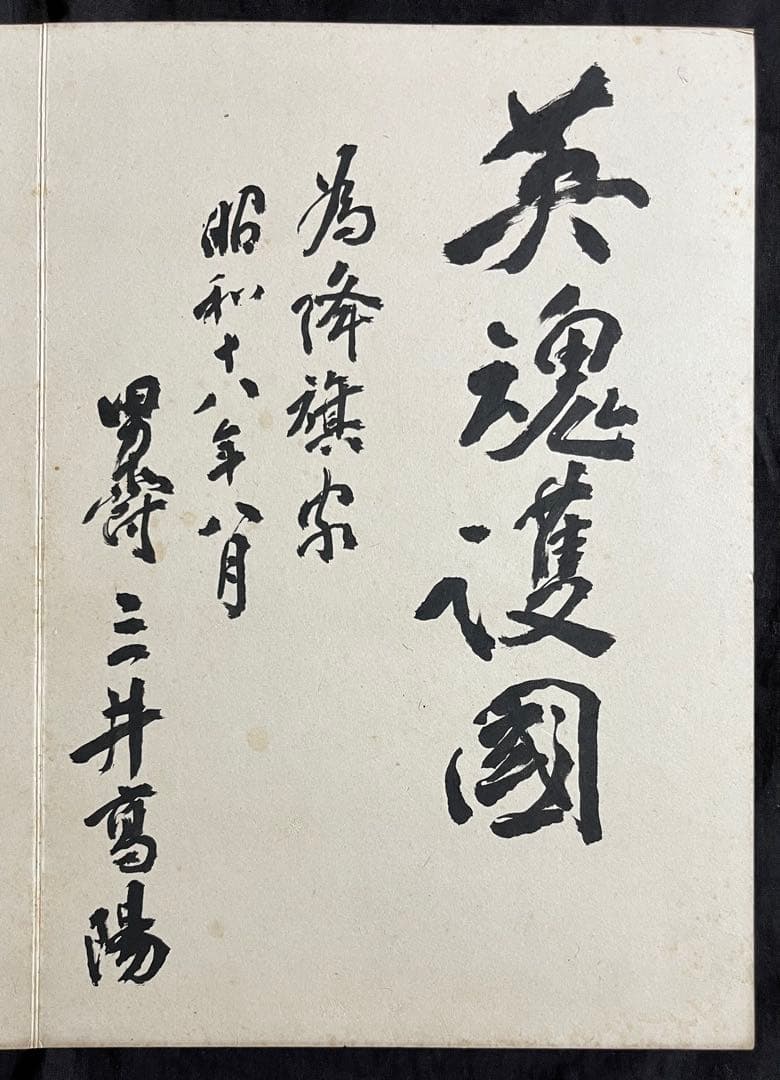 英魂護國
為降旗家
昭和十八年八月
男爵 三井高陽